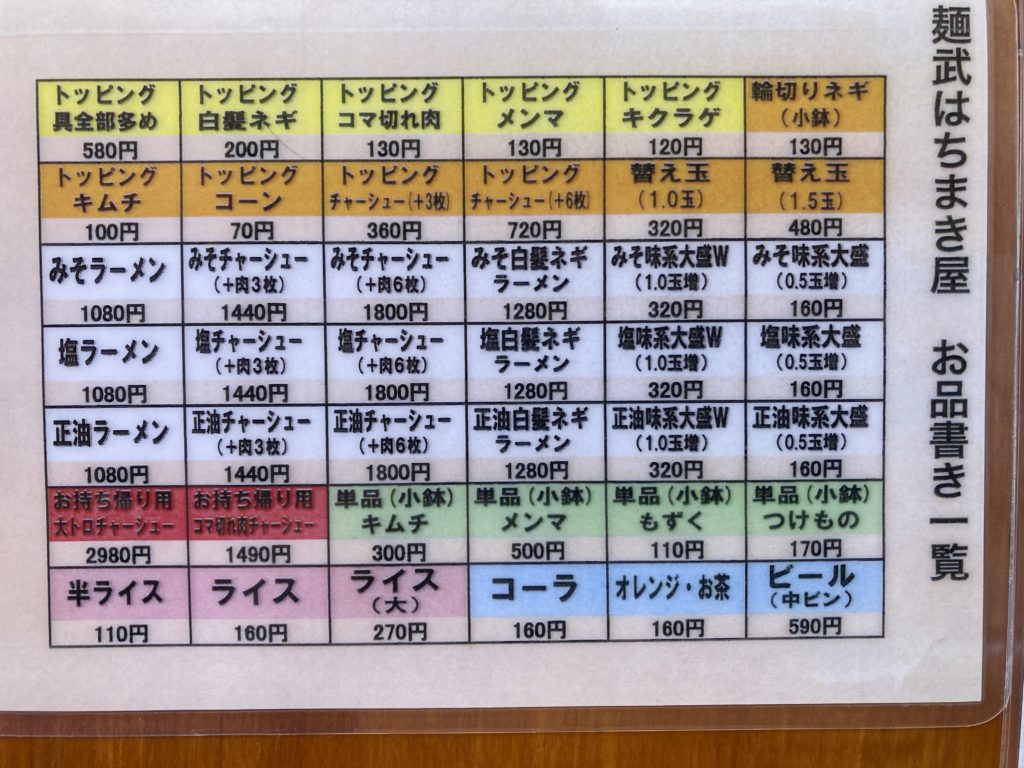 麺武はちまき屋 お品書き一覧
トッピング
具全部多め
580円
トッピング
白髪ネギ
200円
トッピング
コマ切れ肉
130円
トッピング
メンマ
130円
トッピング
キクラゲ
120円
輪切りネギ
(小鉢)
130円
トッピング
キムチ
100円
トッピング
コーン
70円
トッピング
チャーシュー(+3枚)
360円
トッピング
チャーシュー(+6枚)
720円
替え玉
(1.0玉)
320円
替え玉
(1.5玉)
480円
みそラーメン
1080円
みそチャーシュー
(+肉3枚)
1440円
みそチャーシュー
(+肉6枚)
1800円
みそ白髪ネギ
ラーメン
1280円
みそ味系大盛W
(1.0玉増)
320円
みそ味系大盛
(0.5玉増)
160円
塩ラーメン
1080円
塩チャーシュー
(+肉3枚)
1440円
塩チャーシュー
(+肉6枚)
1800円
塩白髪ネギ
ラーメン
1280円
塩味系大盛W
(1.0玉増)
320円
塩味系大盛
(0.5玉増)
160円
正油ラーメン
1080円
正油チャーシュー
(+肉3枚)
1440円
正油チャーシュー
(+肉6枚)
1800円
正油白髪ネギ
ラーメン
1280円
正油味系大盛W
(1.0玉増)
320円
正油味系大盛
(0.5玉増)
160円
お持ち帰り用
大トロチャーシュー
2980円
お持ち帰り用
コマ切れ肉チャーシュー
1490円
単品(小鉢)
キムチ
300円
単品(小鉢)
メンマ
500円
単品(小鉢)
もずく
110円
単品(小鉢)
つけもの
170円
半ライス
110円
ライス
160円
ライス
(大)
270円
コーラ
160円
オレンジ・お茶
160円
ビール
(中ビン)
590円